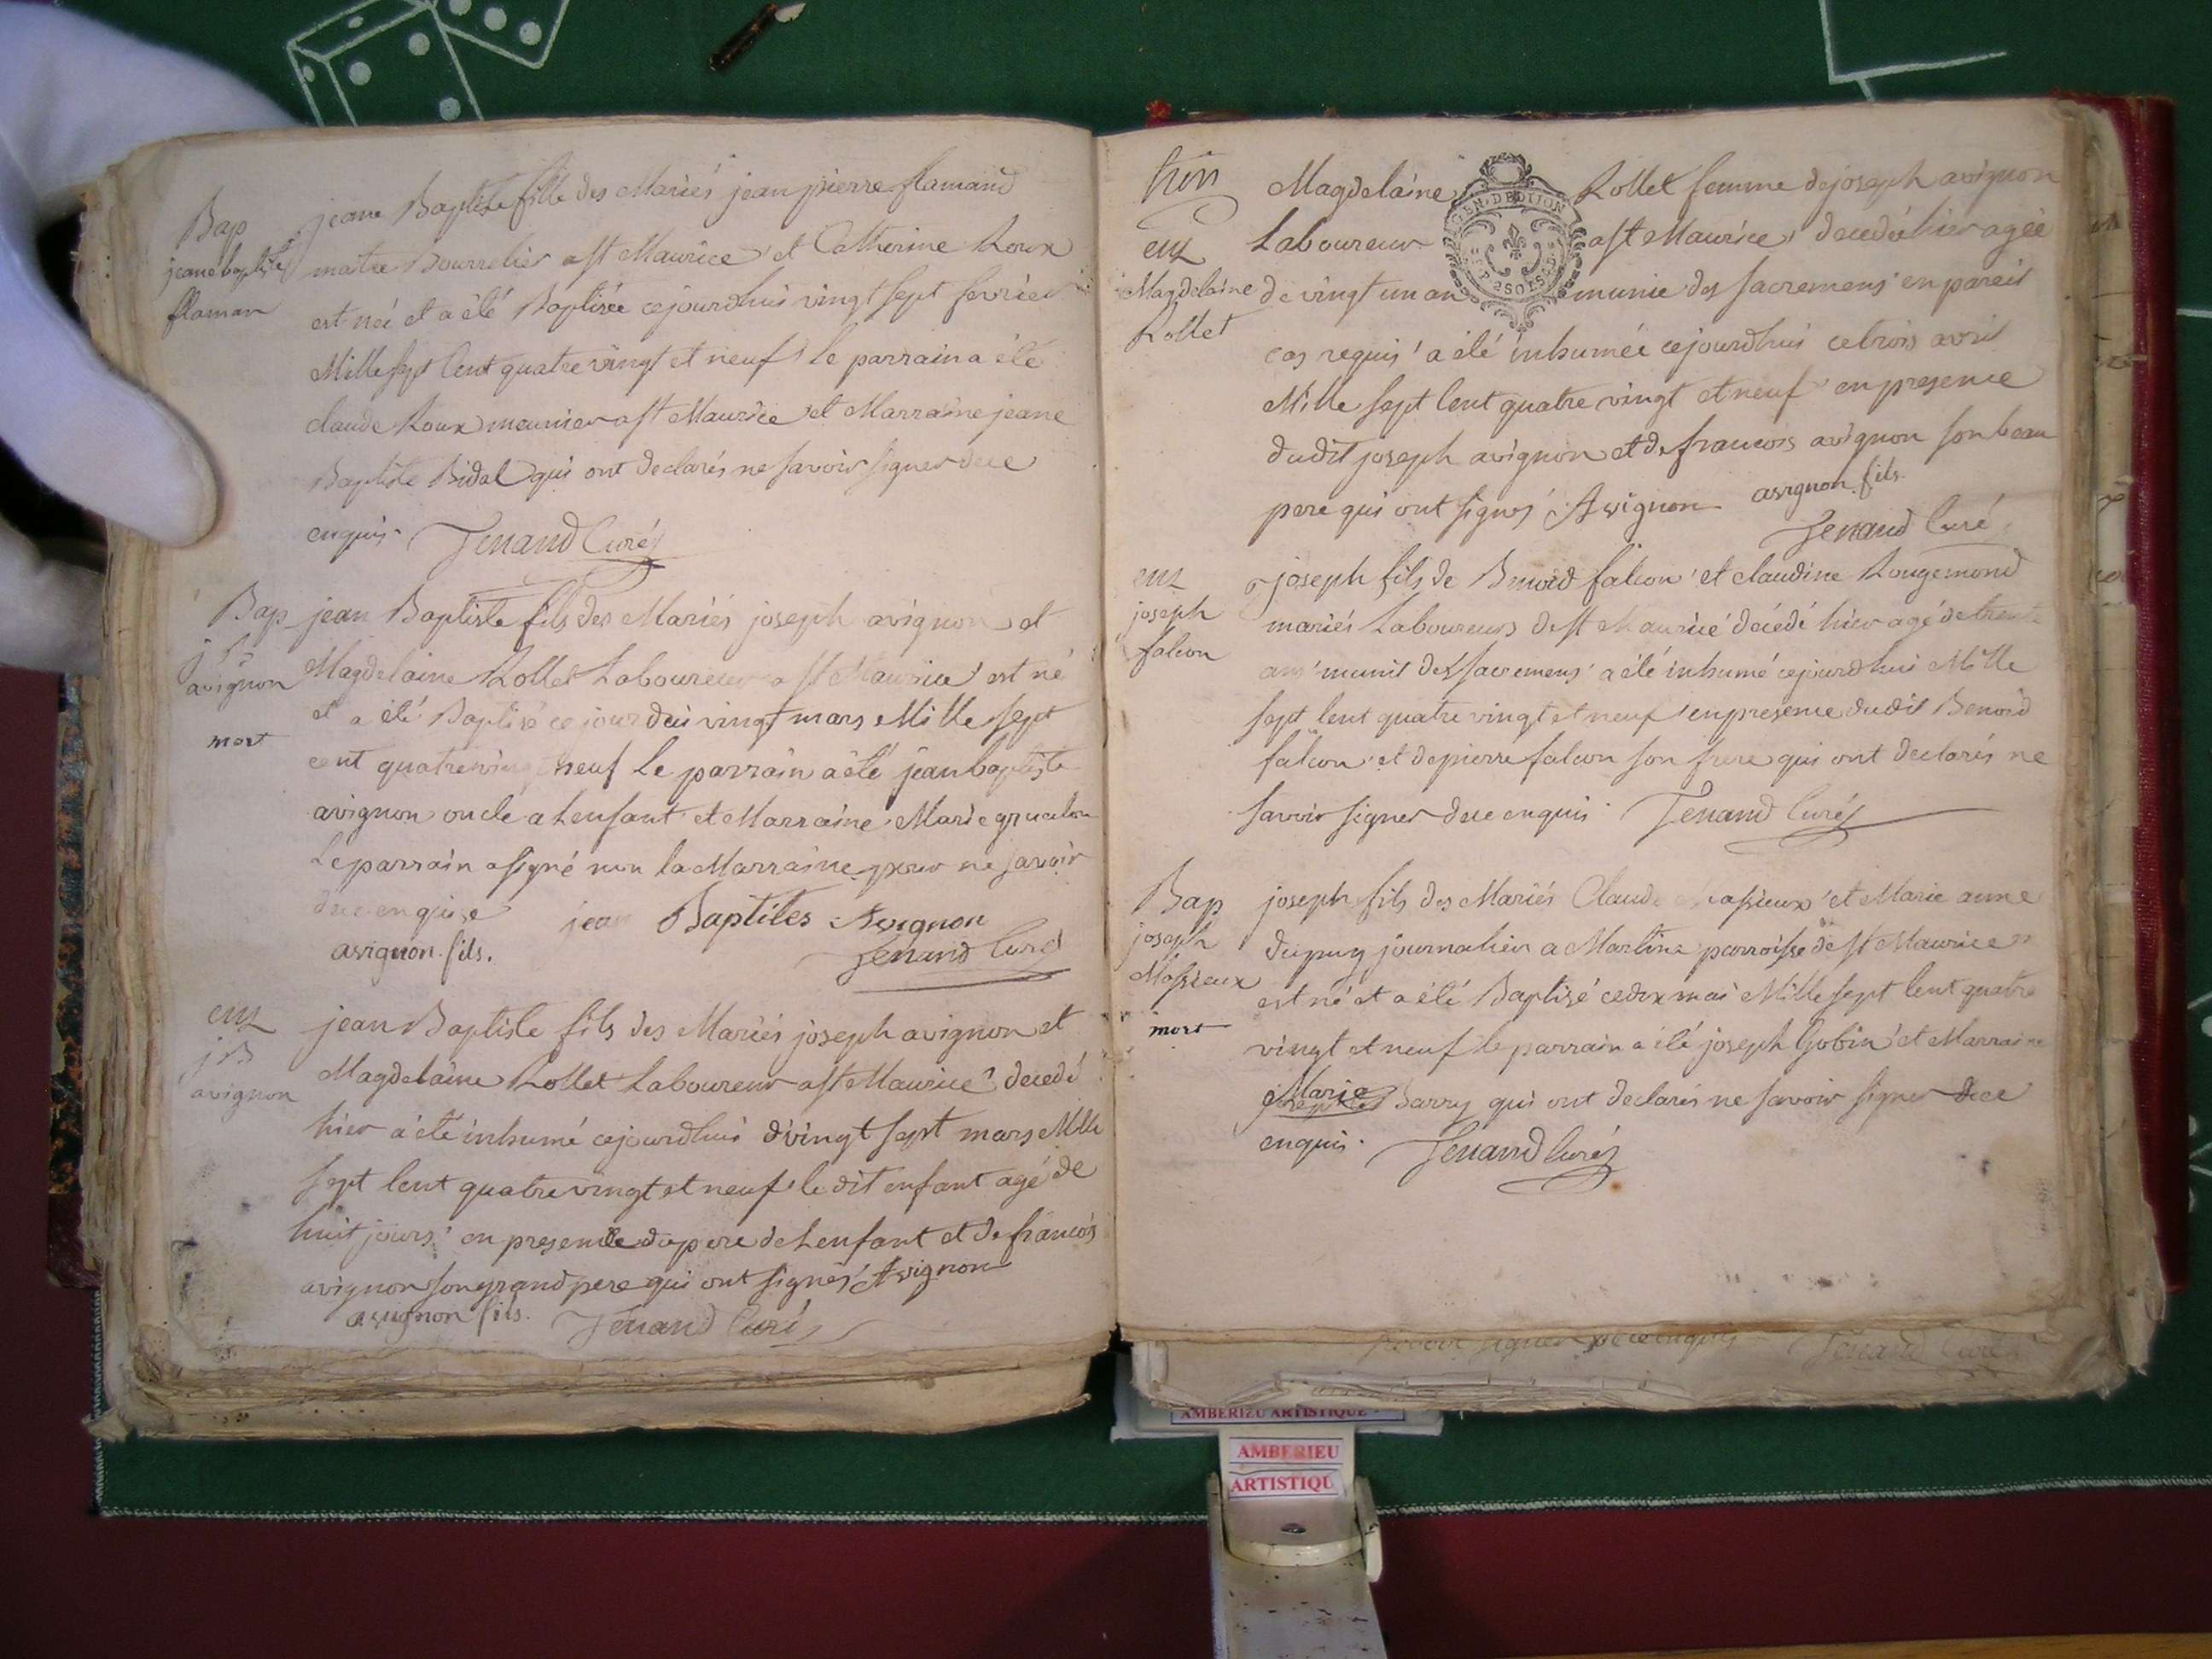 Bap
jeane baptiste
flaman
jeane Baptiste fille des Mariés jean pierre flamand
maitre Bourrelier a st Maurice et Catherine Roux
est née et a été Baptisée cejourdhui vingt sept fevrier
Mille sept Cent quatre vingt et neuf le parrain a été
claude Roux meunier a st Maurice et Marraine jeane
Baptiste Bidal qui ont declarés ne savoir signer de ce
enquis Tenand Curé
Bap
avignon
mort
jean Baptiste fils des Mariés joseph avignon et
Magdelaine Rollet Laboureur a st Maurice est né
et a été Baptisé ce jourdui vingt mars Mille sept
cent quatrevingt neuf Le parrain a été jean baptiste
avignon oncle a Lenfant et Marraine Marie
Le parrain a signé non la Marraine pour ne savoir
de ce enquise jean Baptites Avignon
avignon fils. Tenand Curé
ent
j B
avignon
jean Baptiste fils des Mariés joseph avignon et
Magdelaine Rollet Laboureur a st Maurice decedé
hier a été inhumé cejourdhui vingt sept mars Mille
sept Cent quatre vingt et neuf le dit enfant agé de
huit jours en presence du pere de Lenfant et de francois
avignon son grand pere qui ont signés Avignon
avignon fils. Tenand Curé
ent
Magdelaine
Rollet
Magdelaine Rollet femme de joseph avignon
Laboureur a st Maurice decedée hier agée
GEN. DE DIJON
de vingt un an munie des sacremens en pareil
cas requis a été inhumée cejourdhui ce trois avril
Mille sept Cent quatre vingt et neuf en presence
dudit joseph avignon et de francois avignon son beau
pere qui ont signés Avignon avignon fils.
Tenand Curé
ent
joseph
falcon
joseph fils de Benoid falcon et claudine Rougemond
mariés Laboureurs de st Maurice décédé hier agé de trente
ans munit des sacremens a été inhumé cejourdhui Mille
sept Cent quatre vingt et neuf en presence dudit Benoid
falcon et de pierre falcon son frere qui ont declarés ne
savoir signer de ce enquis Tenand Curé
Bap
joseph
Massieux
mort
joseph fils des Mariés Claude Massieux et Marie anne
dupuy journalier a Martinaz parroisse de st Maurice
est né et a été Baptisé ce dix mai Mille sept Cent quatre
vingt et neuf le parrain a été joseph Gobin et Marraine
Marie Barry qui ont declarés ne savoir signer de ce
enquis. Tenand Curé
savoir signer de ce enquis Tenand Curé
AMBERIEU ARTISTIQUE
AMBERIEU
ARTISTIQU